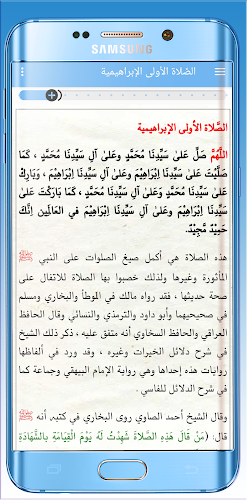 SAMSUNG
الصّلاة الأولى الإبراهيمية
الصَّلاة الأولى الإبراهيمية
اللَّهُمَّ صَلِّ عَلَىٰ سَيِّدِنَا مُحَمَّدٍ وعَلَىٰ آلِ سَيِّدِنَا مُحَمَّدٍ ، كَمَا
صَلَّيْتَ عَلَىٰ سَيِّدِنَا إِبْرَاهِيْمَ وعَلَىٰ آلِ سَيِّدِنَا إِبْرَاهِيْمَ ، وَبَارِكْ
عَلَىٰ سَيِّدِنَا مُحَمَّدٍ وَعَلَىٰ آلِ سَيِّدِنَا مُحَمَّدٍ ، كَمَا بَارَكْتَ عَلَىٰ
سَيِّدِنَا إِبْرَاهِيْمَ وعَلَىٰ آلِ سَيِّدِنَا إِبْرَاهِيْمَ في العَالَمِينَ إِنَّكَ
حَمِيْدٌ مَجِيْدٌ.
هذه الصلاة هي أكمل صيغ الصلوات على النبي ﷺ
المأثورة وغيرها ولذلك خصبوا بها الصلاة للاتفال على
صحة حديثها ، فقد رواه مالك في الموطأ والبخاري ومسلم
في صحيحيهما وأبو داود والترمذي والنسائي وقال الحافظ
العراقي والحافظ السخاوي أنه متفق عليه ، ذكر ذلك الشيخ
في شرح دلائل الخيرات وغيره ، وقد ورد في ألفاظها
روايات هذه إحداها وهي رواية الإمام البيهقي وجماعة كما
في شرح الدلائل للفاسي .
وقال الشيخ أحمد الصاوي روى البخاري في كتبه أنه ﷺ
قال: (مَنْ قَالَ هَذِهِ الصَّلاةَ شَهِدْتُ لَهُ يَوْمَ الْقِيَامَةِ بِالشَّهَادَةِ